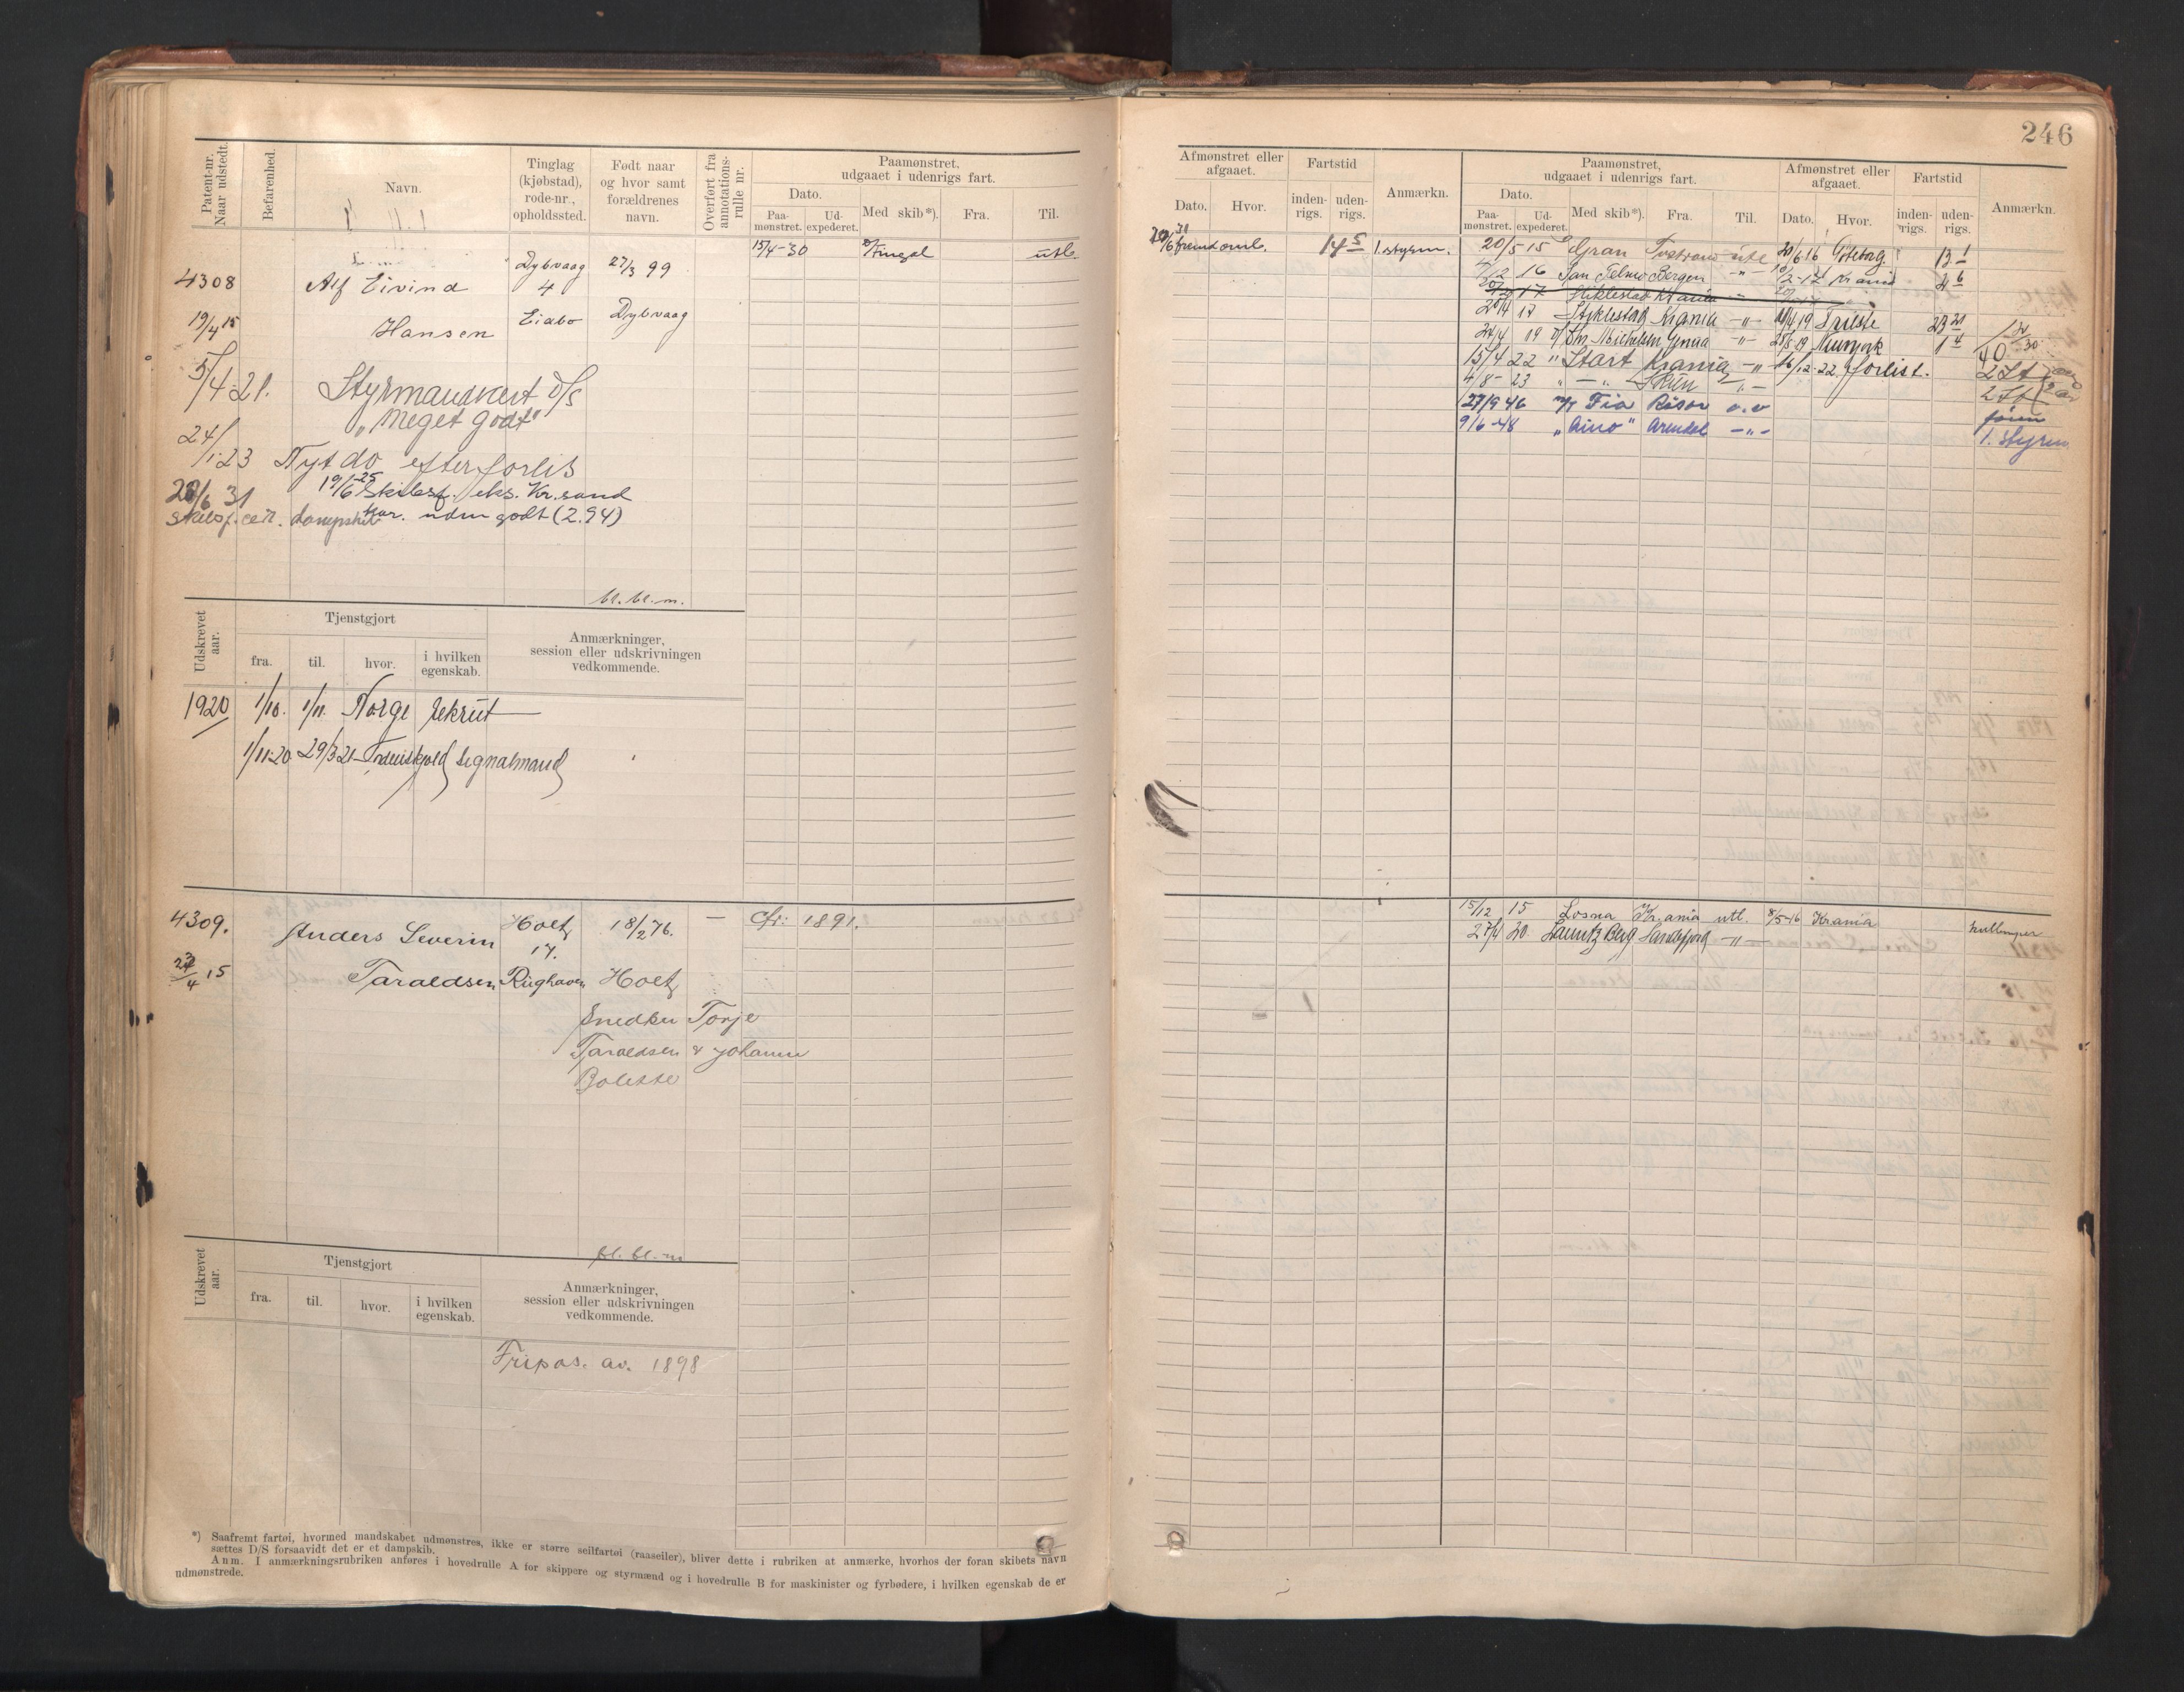 246
Patent-nr. Naar udstedt.
Befarenhed.
Navn.
Tinglag (kjøbstad), rode-nr., opholdssted.
Født naar og hvor samt forældrenes navn.
Overført fra annotations-rulle nr.
Paamønstret, udgaaet i udenrigs fart.
Dato.
Paa-mønstret.
Ud-expederet.
Med skib*).
Fra.
Til.
4308
Alf Eivind
Dybvaag
4
27/3 99
15/4-30
Fingal
utl.
19/4 15
Hansen
Eiabo
Dybvaag
5/4-21.
Styrmandscert D/S
"Meget godt"
24/1-23
Nyt do efter forlis
19/6-25 Skibsf. eks. Kr.sand
20/6 31
Skibsf. cert. dampskib
godt (2.94)
bl. bl. m.
Udskrevet aar.
Tjenstgjort
fra.
til.
hvor.
i hvilken egenskab.
Anmærkninger, session eller udskrivningen vedkommende.
1920
1/10.
1/11.
Norge
rekrut
1/11-20
29/3 21
Tordenskjold
signalmand
4309.
Anders Severin
Holt
17.
18/2 76.
—
Cfr: 1891.
23/4 15
Taraldsen
Rughaven
Holt
Snedker Torje
Taraldsen & Johanne
Bolette
bl. bl. m
Udskrevet aar.
Tjenstgjort
fra.
til.
hvor.
i hvilken egenskab.
Anmærkninger, session eller udskrivningen vedkommende.
Fripas. av. 1898
*) Saafremt fartøi, hvormed mandskabet udmønstres, ikke er større seilfartøi (raaseiler), bliver dette i rubriken at anmærke, hvorhos der foran skibets navn
sættes D/S forsaavidt det er et dampskib.
Anm. I anmærkningsrubriken anføres i hovedrulle A for skippere og styrmænd og i hovedrulle B for maskinister og fyrbødere, i hvilken egenskab de er
udmønstrede.
Afmønstret eller afgaaet.
Dato.
Hvor.
Fartstid
inden-rigs.
uden-rigs.
Anmærkn.
Paamønstret, udgaaet i udenrigs fart.
Dato.
Paa-mønstret.
Ud-expederet.
Med skib*).
Fra.
Til.
Afmønstret eller afgaaet.
Dato.
Hvor.
Fartstid
inden-rigs.
uden-rigs.
Anmærkn.
14 5
1. styrm.
20/5 15 Gran Tvedestrand utl 20/6 16 Gøteborg. 13 1
7/12 16 San Telmo Bergen -"- 10/2-17 Krania 2 6
Stiklestad Krania
20/4 17 Stiklestad Krania -"- 11/4 19 Trieste 23 21
24/4 19 Chr Michelsen Genua -"- 28/5 19 Newyork 1 4
15/4 22 " Start Krania -"- 16/12-22. forlist. 2 St
4/8-23 " — " — Skien -"- 2 St
27/9 46 m/t Fia Risør o.v
9/6-48 "Aino" Arendal -"- 1. styrm.
15/12 15 Losna Kr.ania utl. 8/5-16 Krania kullemper
27/4 20. Lauritz Berg Sandefjord -"-